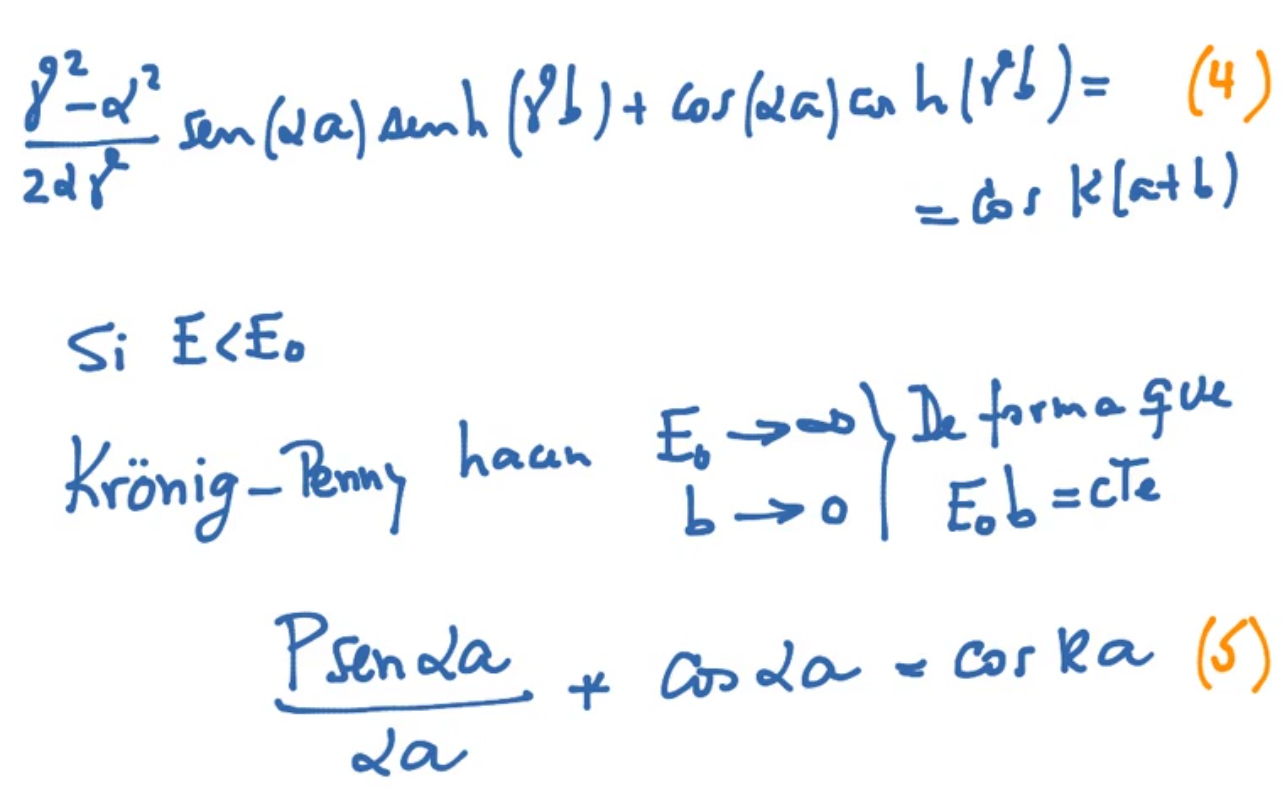 (γ² - α²)/(2αγ) sen(αa) senh(γb) + cos(αa) cosh(γb) = (4)
= cos k(a+b)
Si E<E₀
Krönig-Penny hacen E₀ → ∞ } De forma que
b → 0 E₀b = cTe
(P sen αa)/(αa) + cos αa = cos ka (5)